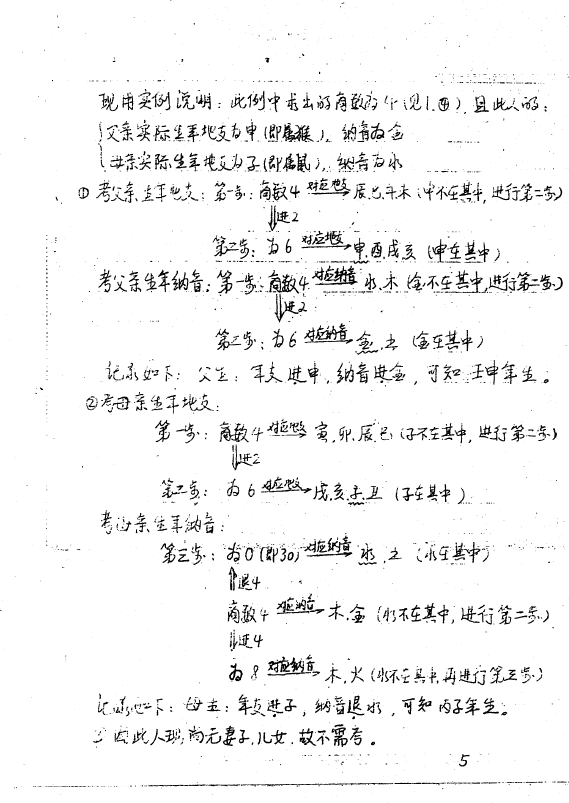 现用实例说明：此例中求出的商数为4(见1.④)，且此人的：
父亲实际生年地支为申(即属猴)，纳音为金
母亲实际生年地支为子(即属鼠)，纳音为水
①考父亲生年地支：第一步：商数4 对应地支→ 辰.巳.午.未 (申不在其中,进行第二步)
⇓进2
第二步：为6 对应地支→ 申.酉.戌.亥 (申在其中)
考父亲生年纳音：第一步：商数4 对应纳音→ 水.木 (金不在其中,进行第二步)
⇓进2
第二步：为6 对应纳音→ 金.土 (金在其中)
记录如下：父生：年支进申，纳音进金，可知壬申年生。
②考母亲生年地支：
第一步：商数4 对应地支→ 寅.卯.辰.巳 (子不在其中，进行第二步)
⇓进2
第二步：为6 对应地支→ 戌.亥.子.丑 (子在其中)
考母亲生年纳音：
第三步：为0(即30) 对应纳音→ 水.土 (水在其中)
⇑退4
商数4 对应纳音→ 木.金 (水不在其中，进行第二步)
⇓进4
为8 对应纳音→ 木.火 (水不在其中,再进行第三步)
记录如下：母生：年支进子，纳音退水，可知丙子年生。
因此人现尚无妻子.儿女.故不需考。
5